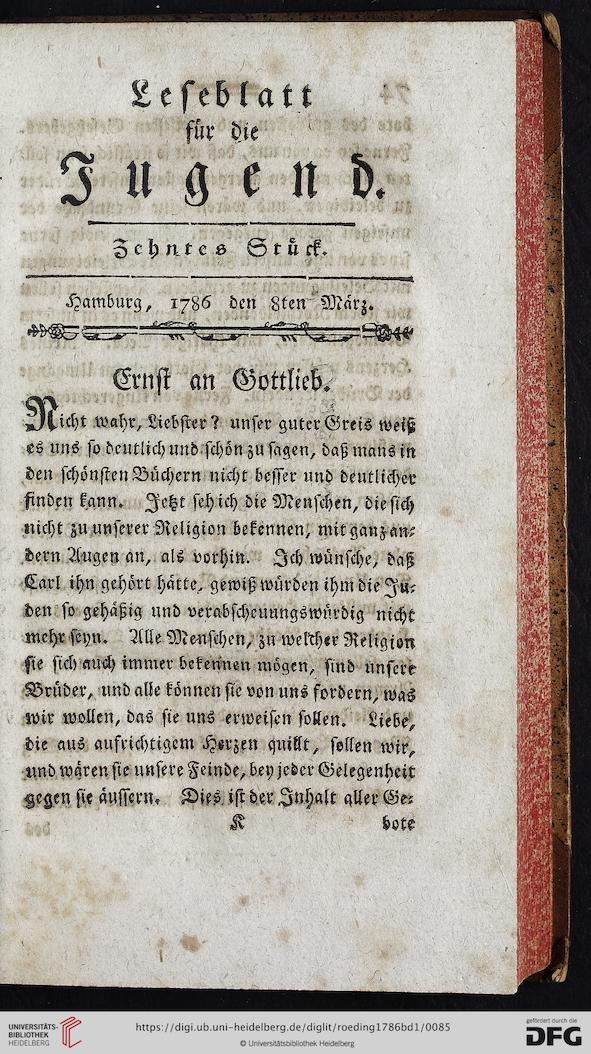 Leseblatt
für die
Jugend.
Zehntes Stück.
Hamburg, 1786 den 8ten März.
Ernst an Gottlieb.
Nicht wahr, Liebster? unser guter Greis weiß
es uns so deutlich und schön zu sagen, daß mans in
den schönsten Büchern nicht besser und deutlicher
finden kann. Jetzt seh ich die Menschen, die sich
nicht zu unserer Religion bekennen, mit ganz an-
dern Augen an, als vorhin. Ich wünsche, daß
Carl ihn gehört hätte, gewiß würden ihm die Ju-
den so gehäßig und verabscheuungswürdig nicht
mehr seyn. Alle Menschen, zu welcher Religion
sie sich auch immer bekennen mögen, sind unsere
Brüder, und alle können sie von uns fordern, was
wir wollen, das sie uns erweisen sollen. Liebe,
die aus aufrichtigem Herzen quillt, sollen wir,
und wären sie unsere Feinde, bey jeder Gelegenheit
gegen sie äussern. Dies ist der Inhalt aller Ge-
K bote
UNIVERSITÄTS-
BIBLIOTHEK
HEIDELBERG
https://digi.ub.uni-heidelberg.de/diglit/roeding1786bd1/0085
© Universitätsbibliothek Heidelberg
gefördert durch die
DFG